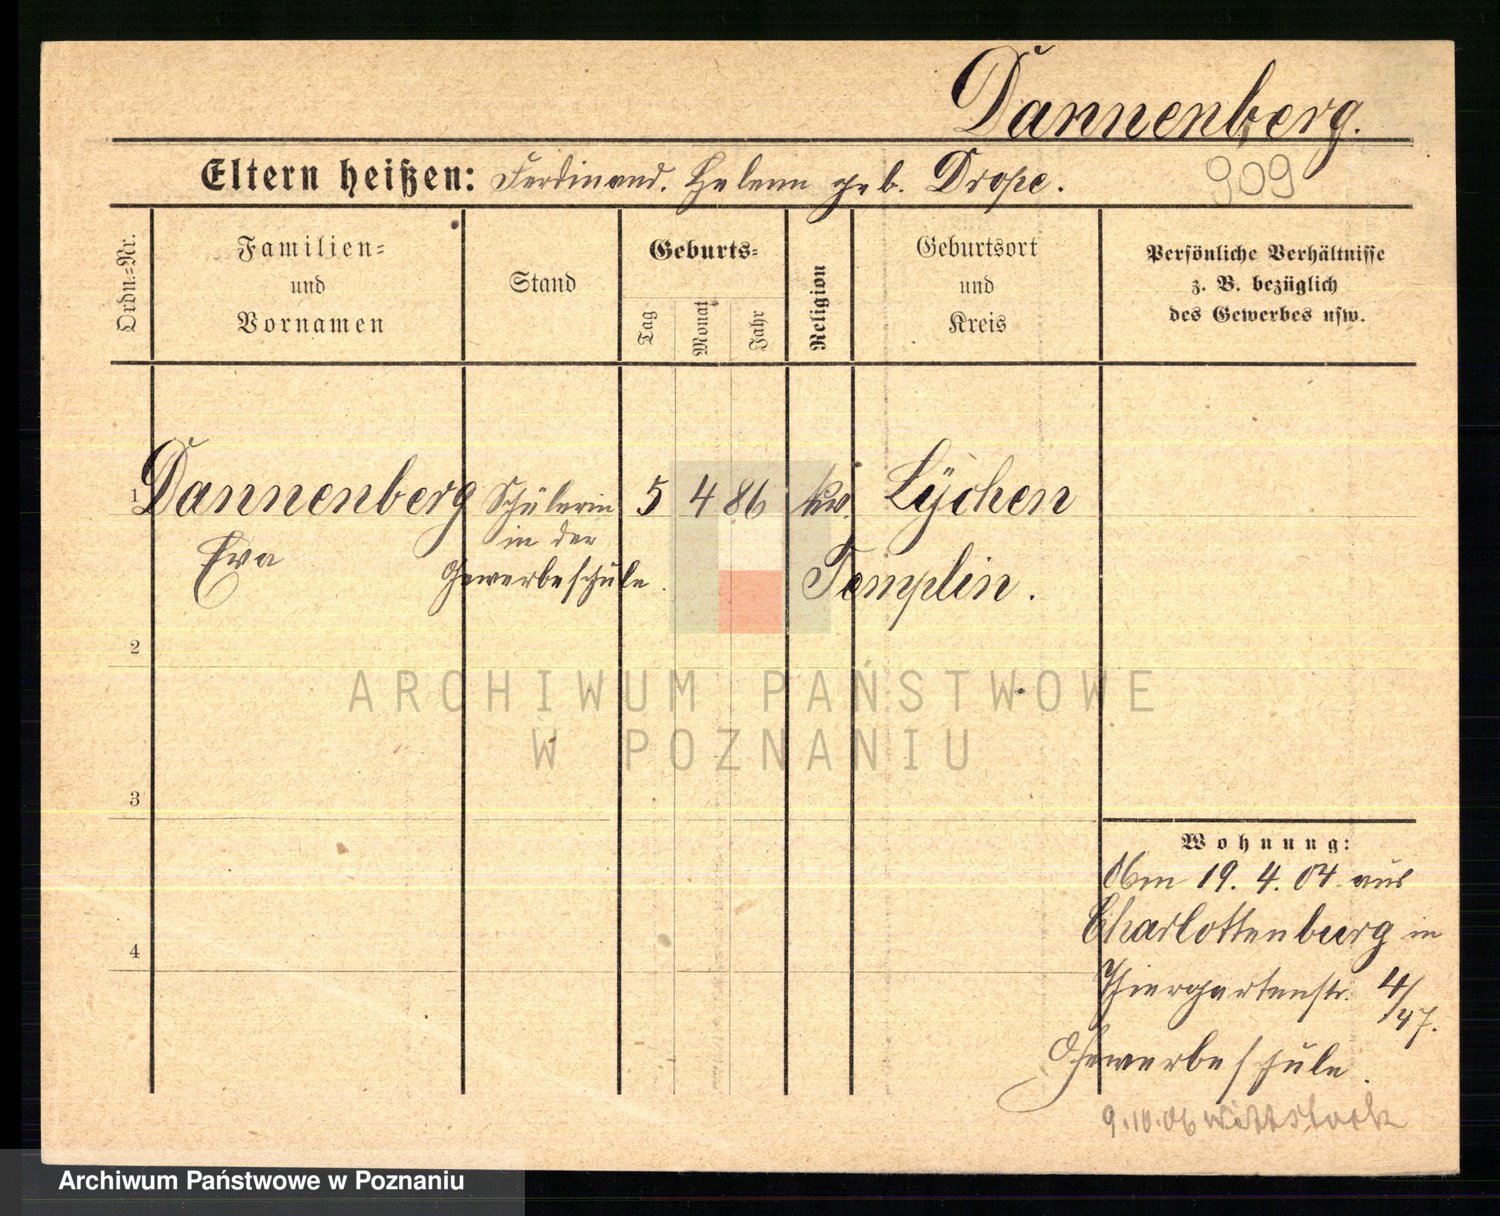 Dannenberg.
Eltern heißen: Ferdinand. Helene geb. Drope.
909
Ordn.-Nr.
Familien-
und
Vornamen
Stand
Geburts-
Tag
Monat
Jahr
Religion
Geburtsort
und
Kreis
Persönliche Verhältnisse
z. B. bezüglich
des Gewerbes usw.
1 Dannenberg Schülerin 5 4 86 Lychen
Eva in der Templin.
Gewerbeschule.
2
3
4
ARCHIWUM PAŃSTWOWE
W POZNANIU
Wohnung:
19. 4. 04. aus
Charlottenburg in
Thiergartenstr. 4/
47.
Gewerbeschule.
9.10.06 Wittstock
Archiwum Państwowe w Poznaniu